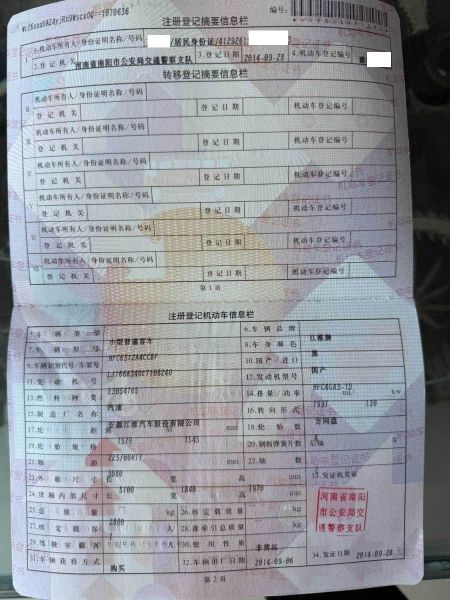 注册登记摘要信息栏
1.机动车所有人/身份证明名称/号码 /居民身份证/412926
2.登记机关 河南省南阳市公安局交通警察支队 3.登记日期 2014-09-28 4.机动车登记编号
转移登记摘要信息栏
机动车所有人/身份证明名称/号码
登记机关 登记日期 机动车登记编号
机动车所有人/身份证明名称/号码
登记机关 登记日期 机动车登记编号
机动车所有人/身份证明名称/号码
登记机关 登记日期 机动车登记编号
机动车所有人/身份证明名称/号码
登记机关 登记日期 机动车登记编号
机动车所有人/身份证明名称/号码
登记机关 登记日期 机动车登记编号
机动车所有人/身份证明名称/号码
登记机关 登记日期 机动车登记编号
第1页
注册登记机动车信息栏
5.车辆类型 小型普通客车 6.车辆品牌 江淮牌
7.车辆型号 8.车身颜色 黑
9.车辆识别代号/车架号 10.国产/进口 国产
11.发动机号 12.发动机型号 HFC4GA3-1D
13.燃料种类 汽油 14.排量/功率 1997 130 kw
15.制造厂名称 安徽江淮汽车股份有限公司 16.转向形式 方向盘
17.轮距 1570 1545 mm 18.轮胎数
19.轮胎规格 225/60R17 20.钢板弹簧片数 片
21.轴距 3080 mm 22.轴数 2
23.外廓尺寸 长 5100 宽 1840 高 1970 mm 33.发证机关章
24.货厢内部尺寸 长 宽 高 mm
25.总质量 2800 kg 26.核定载质量 kg
27.核定载客 7 人 28.准牵引总质量 kg
29.驾驶室载客 人 30.使用性质 非营运
31.车辆获得方式 购买 32.车辆出厂日期 2014-09-06 34.发证日期 2014-09-28
河南省南阳
市公安局交
通警察支队
第2页